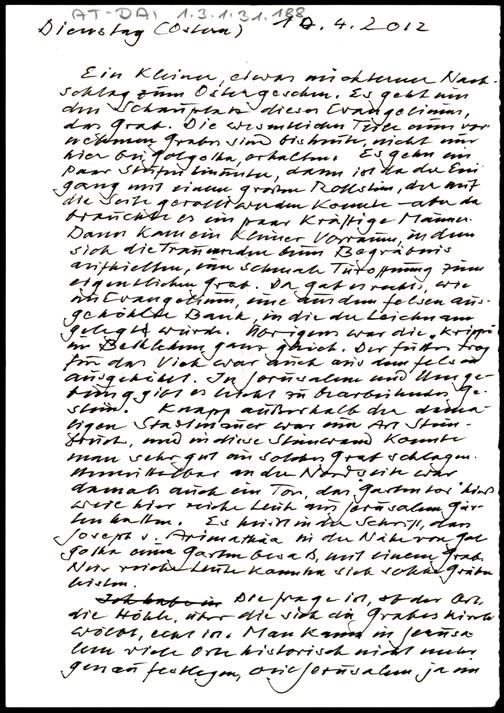 AT-DA, 1.3.1.31.188
Dienstag (Ostern) 10.4.2012
Ein kleiner, etwas nüchterner Nach-
schlag zum Ostergeschen. Es geht um
den Schauplatz dieses Evangeliums,
das Grab. Die wesentlichen Teile eines vor
nehmen Grabes sind bis heute, nicht nur
hier bei Golgotha, erhalten. Es gehn ein
paar Stufen hinunter, dann ist da der Ein
gang mit einem großen Rollstein, der auf
die Seite gerollt werden konnte - aber da
brauchte es ein paar kräftige Männer.
Dann kam ein kleiner Vorraum, in dem
sich die Trauernden beim Begräbnis
aufhielten, eine schmale Türöffnung zum
eigentlichen Grab. Da gab es rechts, wie
im Evangelium, eine aus dem Felsen aus-
gehöhlte Bank, in die der Leichnam
gelegt wurde. Übrigens war die "Krippe"
in Bethlehem ganz gleich. Der Futtertrog
für das Vieh war auch aus dem Felsen
ausgehöhlt. In Jerusalem und Umge-
bung gibt es leicht zu bearbeitendes Ge-
stein. Knapp außerhalb der dama-
ligen Stadtmauer war ein Art Stein-
bruch, und in diese Steinwand konnte
man sehr gut ein solches Grab schlagen.
Unmittelbar an der Nordseite war
damals auch ein Tor, das "Gartentor" hieß
weil hier reiche Leute aus Jerusalem Gär-
ten hatten. Es heißt in der Schrift, dass
Joseph v. Arimathäa in der Nähe von Gol
gotha einen Garten besaß, mit einem Grab.
Nur reiche Leute konnten sich solche Gräber
leisten.
Ich habe in Die Frage ist, ob der Ort,
die Höhle, über die sich die Grabeskirche
wölbt, echt ist. Man kann in Jerusa
lem viele Orte historisch nicht mehr
genau festlegen, weil Jerusalem ja im